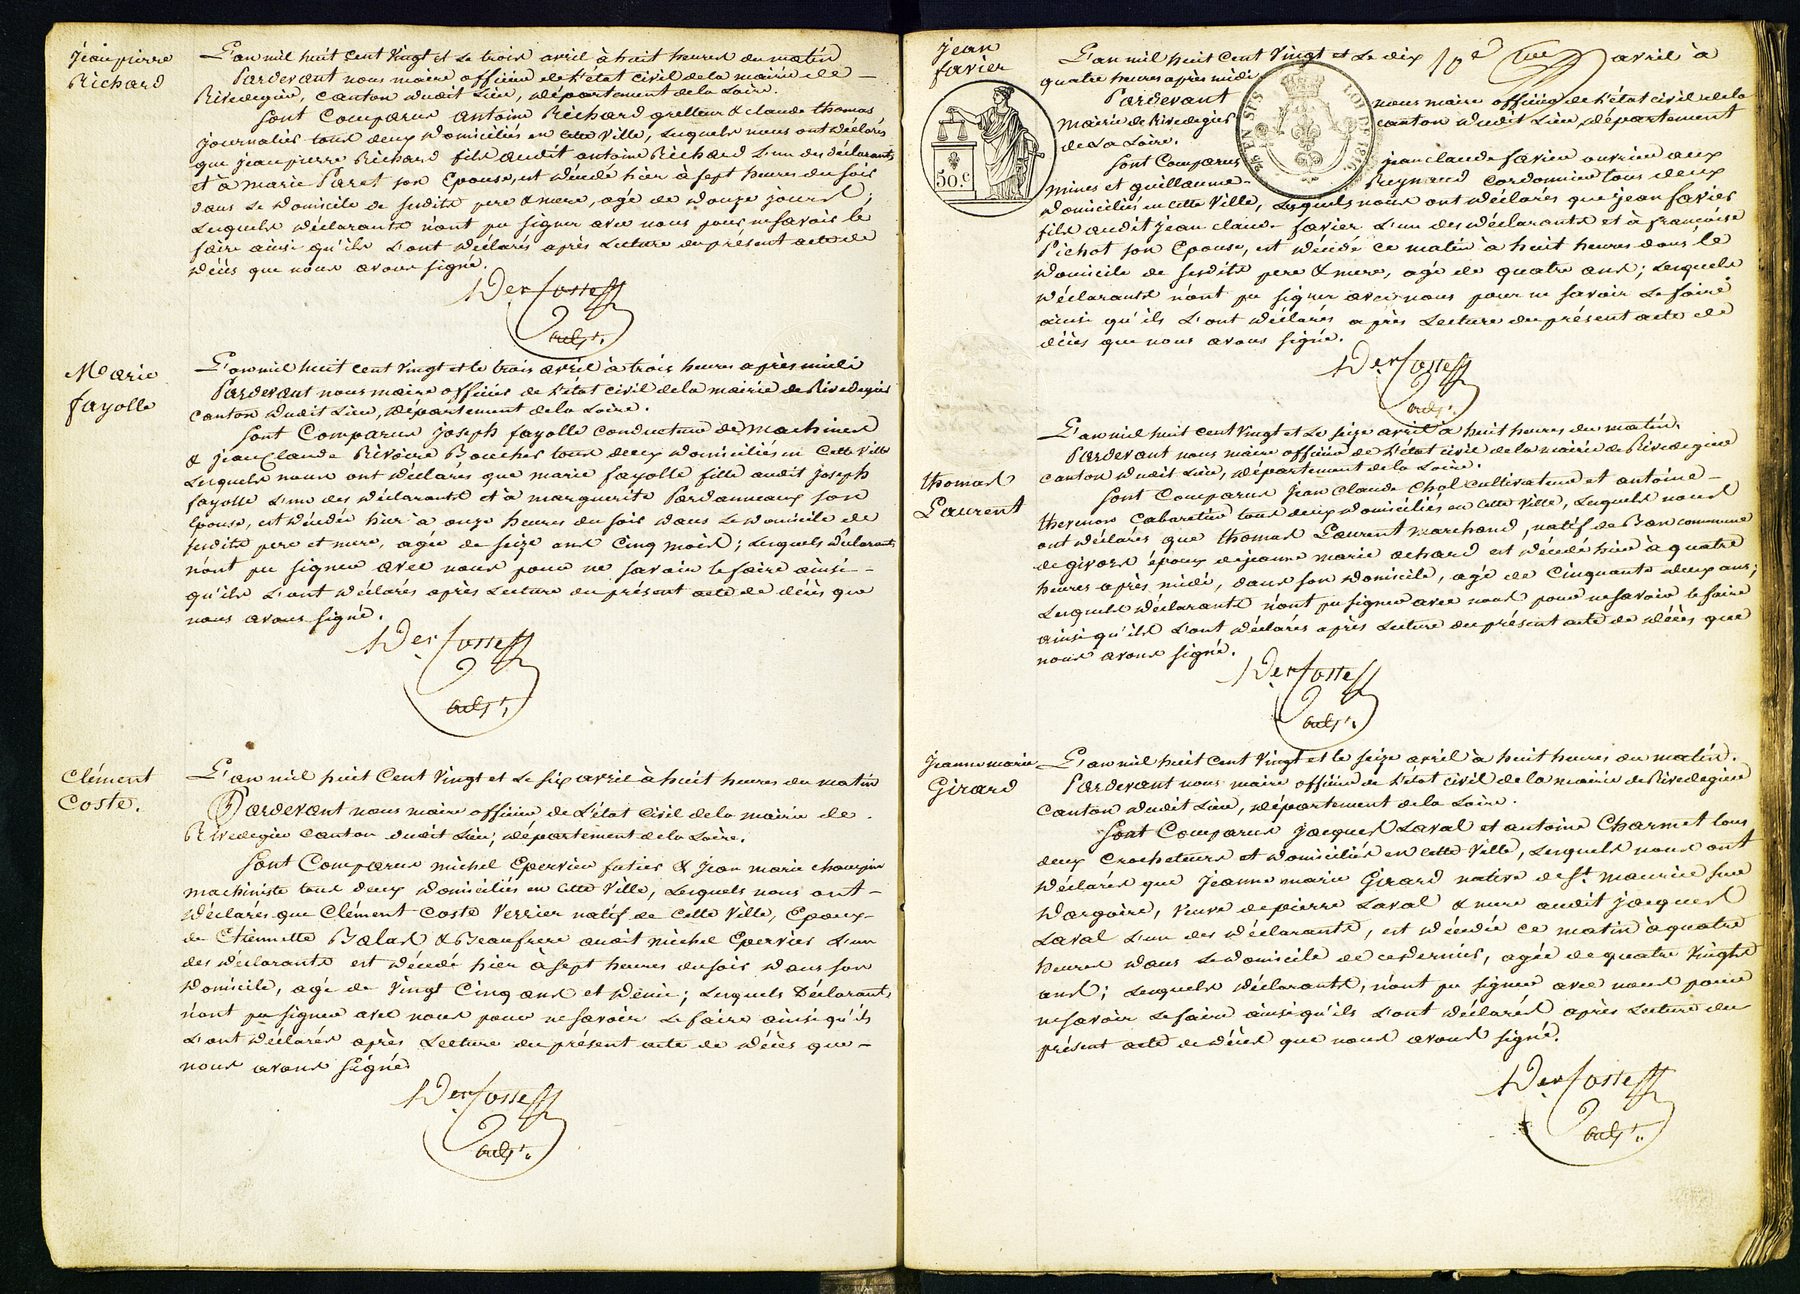 Jeanpierre
Richard
L'an mil huit cent vingt et le trois avril à huit heures du matin
Pardevant nous maire officier de l'état civil de la mairie de
Rivedegier, canton dudit lieu, département de la Loire.
Sont comparus antoine Richard grelleur & claude thomas
journalier tous deux domiciliés en cette ville, lesquels nous ont déclarés
que jeanpierre Richard fils audit antoine Richard l'un des déclarants
et à marie Paret son Epouse, est décédé hier à sept heures du soir
dans le domicile de sesdits pere & mere, agé de douze jours;
Lesquels déclarants n'ont pu signer avec nous pour ne savoir le
faire ainsi qu'ils l'ont déclarés après lecture du présent acte de
décès que nous avons signé.
Marie
fayolle
L'an mil huit cent vingt et le trois avril à trois heures après midi
Pardevant nous maire officier de l'état civil de la mairie de Rivedegier
canton dudit Lieu, département de la Loire.
Sont Comparus joseph fayolle conducteur de machines
& jean Claude Rivoire Boucher tous deux domiciliés en cette ville
Lesquels nous ont déclarés que marie fayolle fille audit joseph
fayolle l'un des déclarants et à marguerite Pardonneaux son
épouse, est décédée hier à onze heures du soir dans le domicile de
sesdits pere et mere, agée de seize ans cinq mois; Lesquels déclarants
n'ont pu signer avec nous pour ne savoir le faire ainsi
qu'ils l'ont déclarés après lecture du présent acte de décès que
nous avons signé.
Clément
Coste.
L'an mil huit cent vingt et le six avril à huit heures du matin
Pardevant nous maire officier de l'état civil de la mairie de
Rivedegier canton dudit Lieu, département de la Loire.
Sont Comparus michel Epervier & jean marie
machiniste tous deux domiciliés en cette ville, Lesquels nous ont
déclarés que Clément Coste verrier natif de cette ville, Epoux
de Etiennette Balas & Beaufrere audit michel Epervier l'un
des déclarants est décédé hier à sept heures du soir dans son
domicile, agé de vingt cinq ans et demie; Lesquels Déclarants
n'ont pu signer avec nous pour ne savoir le faire ainsi qu'ils
l'ont déclarés après Lecture du présent acte de décès que
nous avons signé
jean
favier
L'an mil huit cent vingt et le dix avril à
quatre heures après midi
Pardevant nous maire officier de l'état civil de la
mairie de Rivedegier canton dudit Lieu, département
de La Loire.
50.c
Sont Comparus jean claude favier ouvrier aux
mines et guillaume Reynaud cordonnier tous deux
domiciliés en cette ville, lesquels nous ont déclarés que jean favier
fils audit jean claude favier l'un des déclarants et à françoise
Pichot son Epouse, est décédé ce matin à huit heures dans le
domicile de sesdits pere & mere, agé de quatre ans; Lesquels
déclarants n'ont pu signer avec nous pour ne savoir le faire
ainsi qu'ils l'ont déclarés après Lecture du présent acte de
décès que nous avons signé.
thomas
Laurent
L'an mil huit cent vingt et le seize avril à huit heures du matin.
Pardevant nous maire officier de l'état civil de la mairie de Rivedegier
canton dudit Lieu, département de la Loire.
Sont Comparus Jean Claude Chol cultivateur et antoine
thermon Cabaretier tous deux domiciliés en cette ville, Lesquels nous
ont déclarés que thomas Laurent marchand, natif de Ban commune
de givors époux de jeanne marie achard est décédé hier à quatre
heures après midi, dans son domicile, agé de cinquante deux ans;
Lesquels déclarants n'ont pu signer avec nous pour ne savoir le faire
ainsi qu'ils l'ont déclarés après Lecture du présent acte de décès que
nous avons signé.
Jeanne marie
Girard
L'an mil huit cent vingt et le seize avril à huit heures du matin.
Pardevant nous maire officier de l'état civil de la mairie de Rivedegier
Canton dudit Lieu, département de la Loire.
Sont Comparus jacques Laval et antoine Charmet tous
deux Crocheteurs et domiciliés en cette ville, Lesquels nous ont
déclarés que jeanne marie Girard native de St. maurice sur
dargoire, veuve de pierre Laval & mere audit jacques
Laval l'un des déclarants, est décédée ce matin à quatre
heures dans le domicile de ce dernier, agée de quatre vingts
ans; Lesquels déclarants, n'ont pu signer avec nous pour
ne savoir le faire ainsi qu'ils l'ont déclarés après Lecture du
présent acte de décès que nous avons signé.